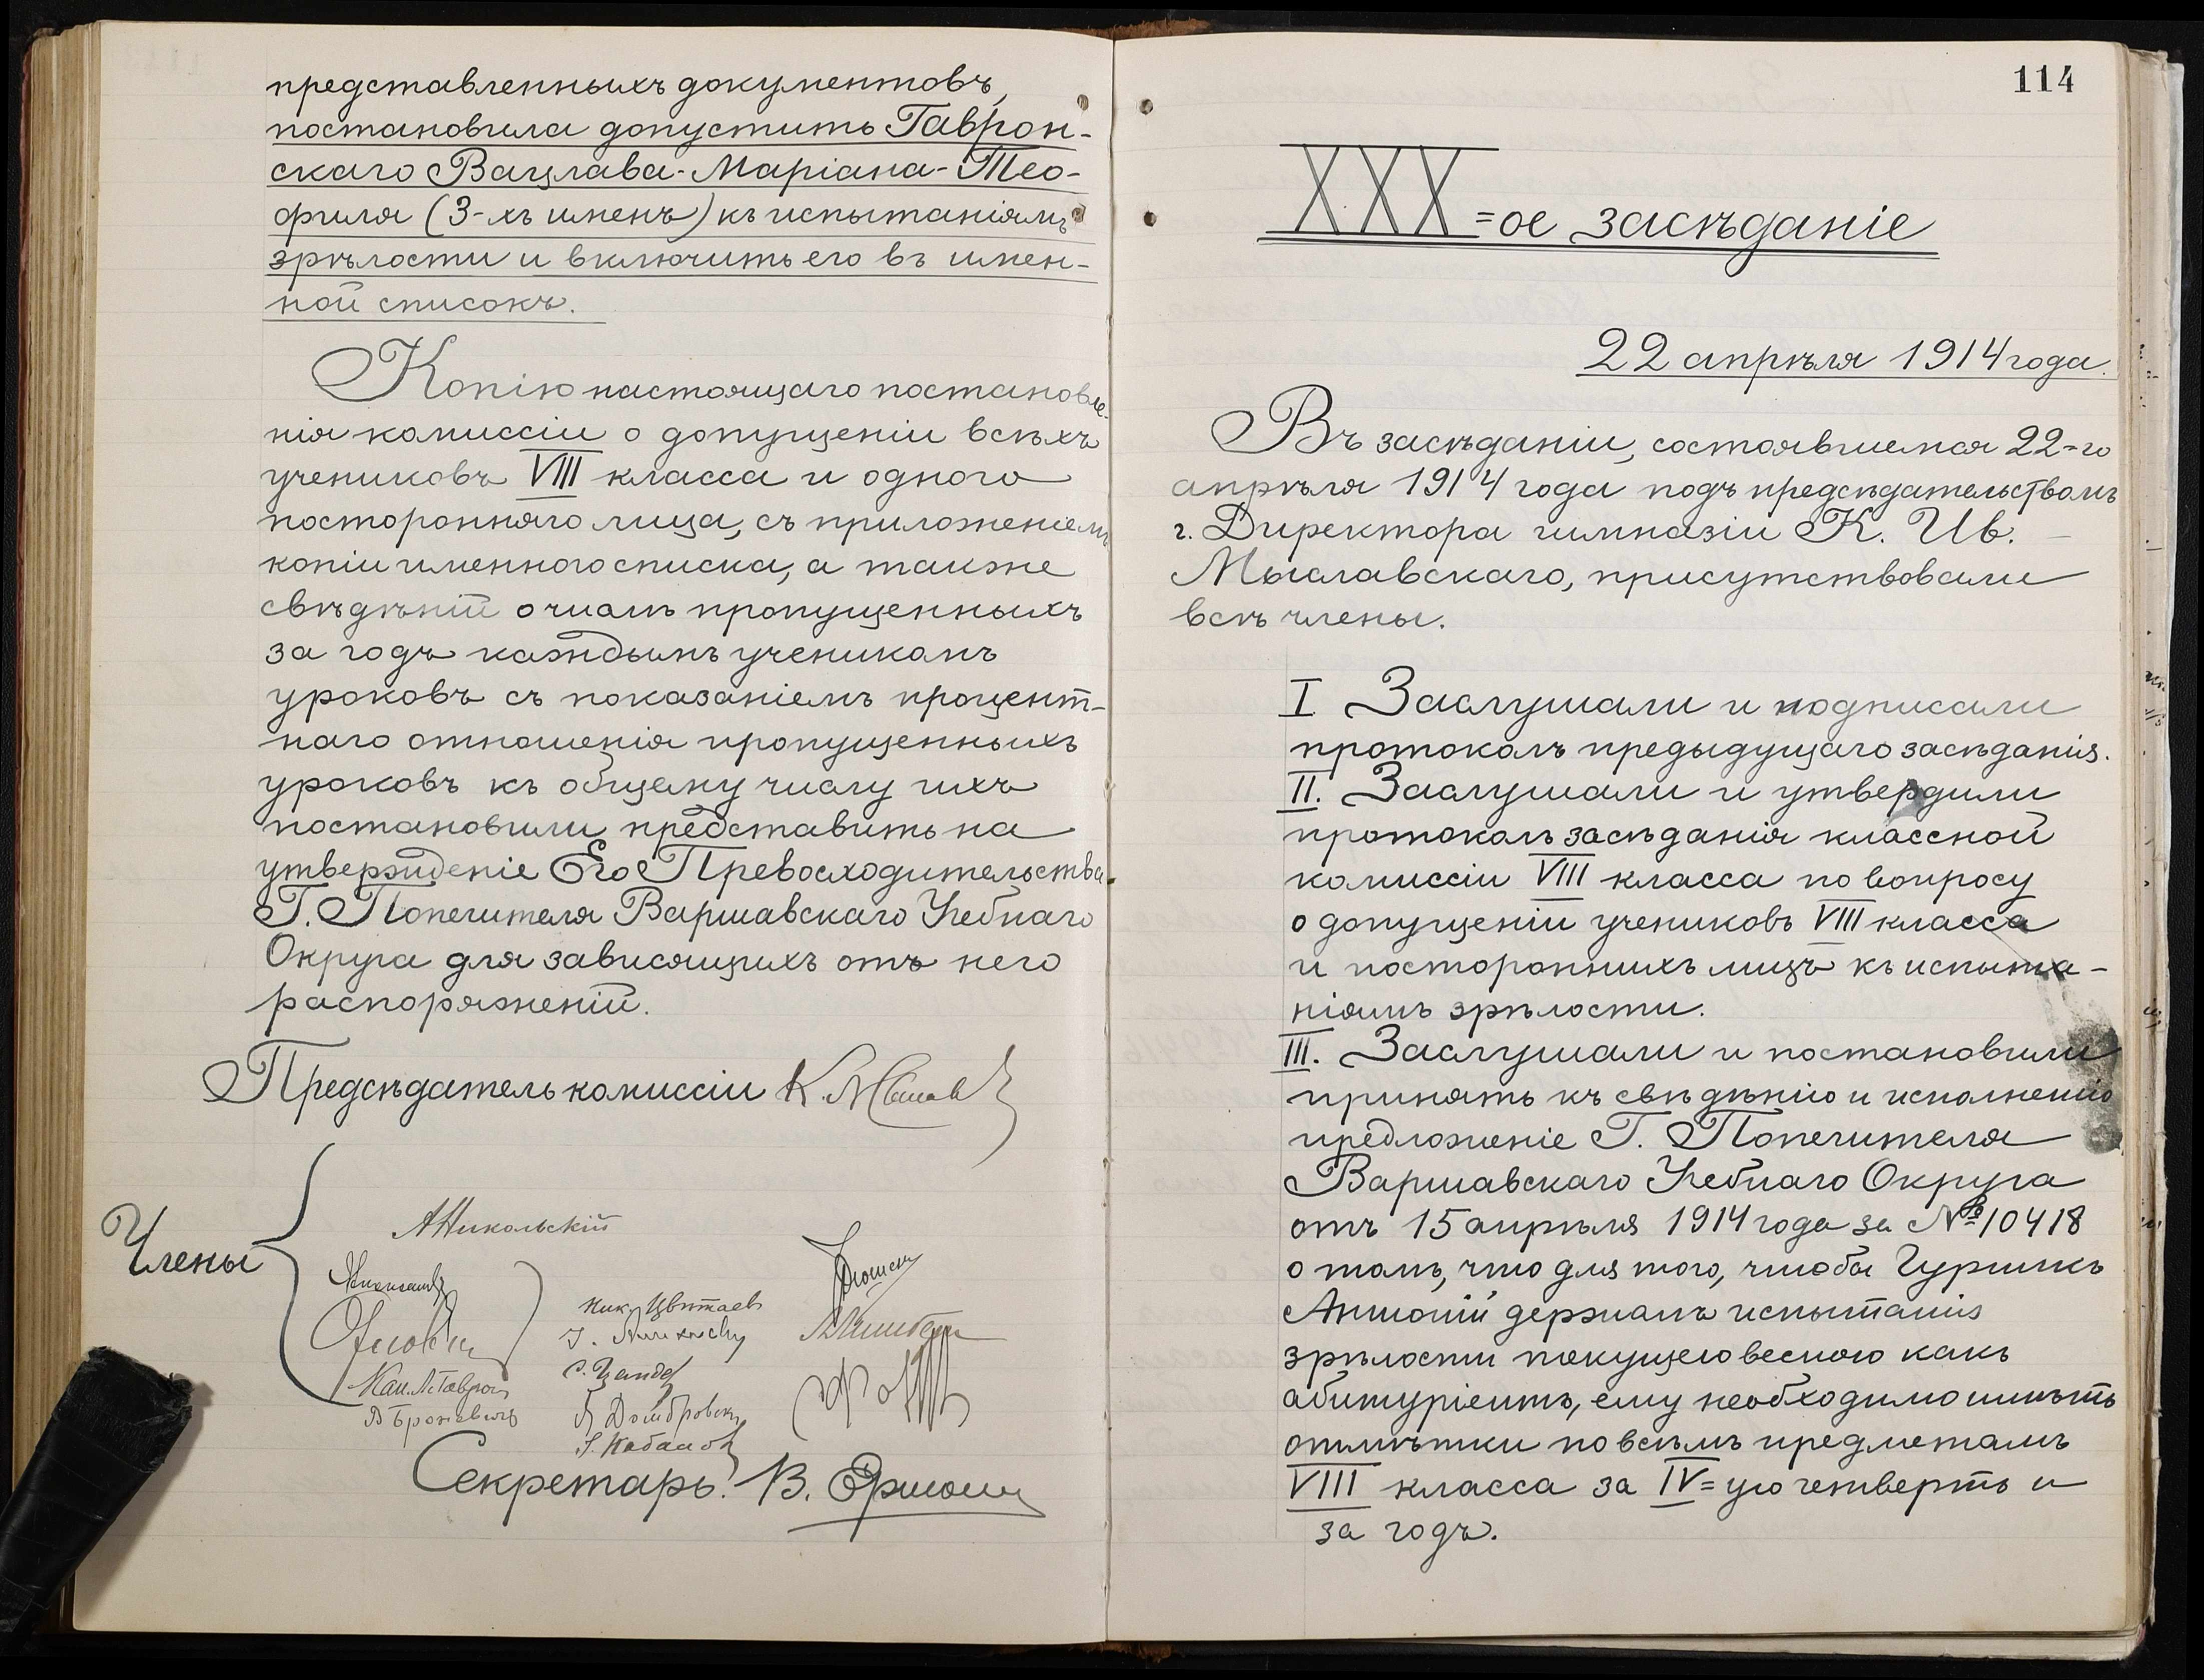 представленныхъ документовъ,
постановила допустить Гаврон-
скаго Вацлава-Маріана-Тео-
филя (3-хъ именъ) къ испытаніямъ
зрѣлости и включить его въ имен-
ной списокъ.
Копію настоящаго постановле-
нія комиссіи о допущеніи всѣхъ
учениковъ VIII класса и одного
посторонняго лица, съ приложеніемъ
копіи именного списка, а также
свѣдѣній о числѣ пропущенныхъ
за годъ каждымъ ученикомъ
уроковъ съ показаніемъ процент-
наго отношенія пропущенныхъ
уроковъ къ общему числу ихъ
постановили представить на
утвержденіе Его Превосходительства
Г. Попечителя Варшавскаго Учебнаго
Округа для зависящихъ отъ него
распоряженій.
Предсѣдатель комиссіи К.
Члены
А Никольскій
Ник. Цвѣтаевъ
Секретарь: В.
114
XXX=ое засѣданіе
22 апрѣля 1914 года.
Въ засѣданіи, состоявшемся 22-го
апрѣля 1914 года подъ предсѣдательствомъ
г. Директора гимназіи К. Ив.
Мыславскаго, присутствовали
всѣ члены.
I Заслушали и подписали
протоколъ предыдущаго засѣданія.
II. Заслушали и утвердили
протоколъ засѣданія классной
комиссіи VIII класса по вопросу
о допущеніи учениковъ VIII класса
и постороннихъ лицъ къ испыта-
ніямъ зрѣлости.
III. Заслушали и постановили
принять къ свѣдѣнію и исполненію
предложеніе Г. Попечителя
Варшавскаго Учебнаго Округа
отъ 15 апрѣля 1914 года за № 10418
о томъ, что для того, чтобы Гуришкъ
Антоній держалъ испытанія
зрѣлости текущею весною какъ
абитуріентъ, ему необходимо имѣть
отмѣтки по всѣмъ предметамъ
VIII класса за IV=ую четверть и
за годъ.